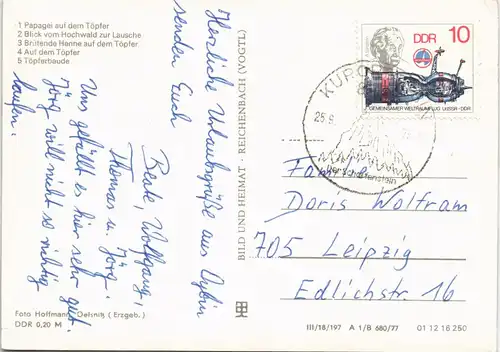 1 Papagei auf dem Töpfer
2 Blick vom Hochwald zur Lausche
3 Brütende Henne auf dem Töpfer
4 Auf dem Töpfer
5 Töpferbaude
Herzliche Urlaubsgrüße aus Oybin
senden Euch
Beate, Wolfgang,
Thomas u. Jörg.
Uns gefällt es hier sehr gut.
Jörg will nicht so richtig
laufen.
Foto Hoffmann, Oelsnitz (Erzgeb.)
DDR 0,20 M
BILD UND HEIMAT · REICHENBACH (VOGTL)
III/18/197 A 1/B 680/77 01 12 16 250
DDR 10
GEMEINSAMER WELTRAUMFLUG UdSSR-DDR
KURORT
25.9.
Scharfenstein
Familie
Doris Wolfram
705 Leipzig
Edlichstr 16